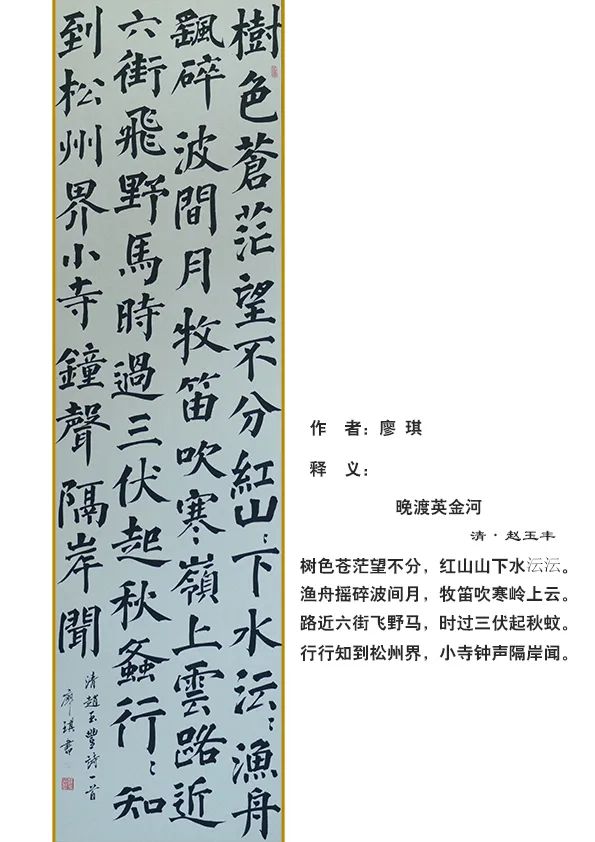 樹色蒼茫望不分紅山〻下水沄〻漁舟
颻碎波間月牧笛吹寒嶺上雲路近
六街飛野馬時過三伏起秋行〻知
到松州界小寺鐘聲隔岸聞
清趙玉豐詩一首
廖琪書
作 者：廖 琪
释 义：
晚渡英金河
清·赵玉丰
树色苍茫望不分，红山山下水沄沄。
渔舟摇碎波间月，牧笛吹寒岭上云。
路近六街飞野马，时过三伏起秋蚊。
行行知到松州界，小寺钟声隔岸闻。